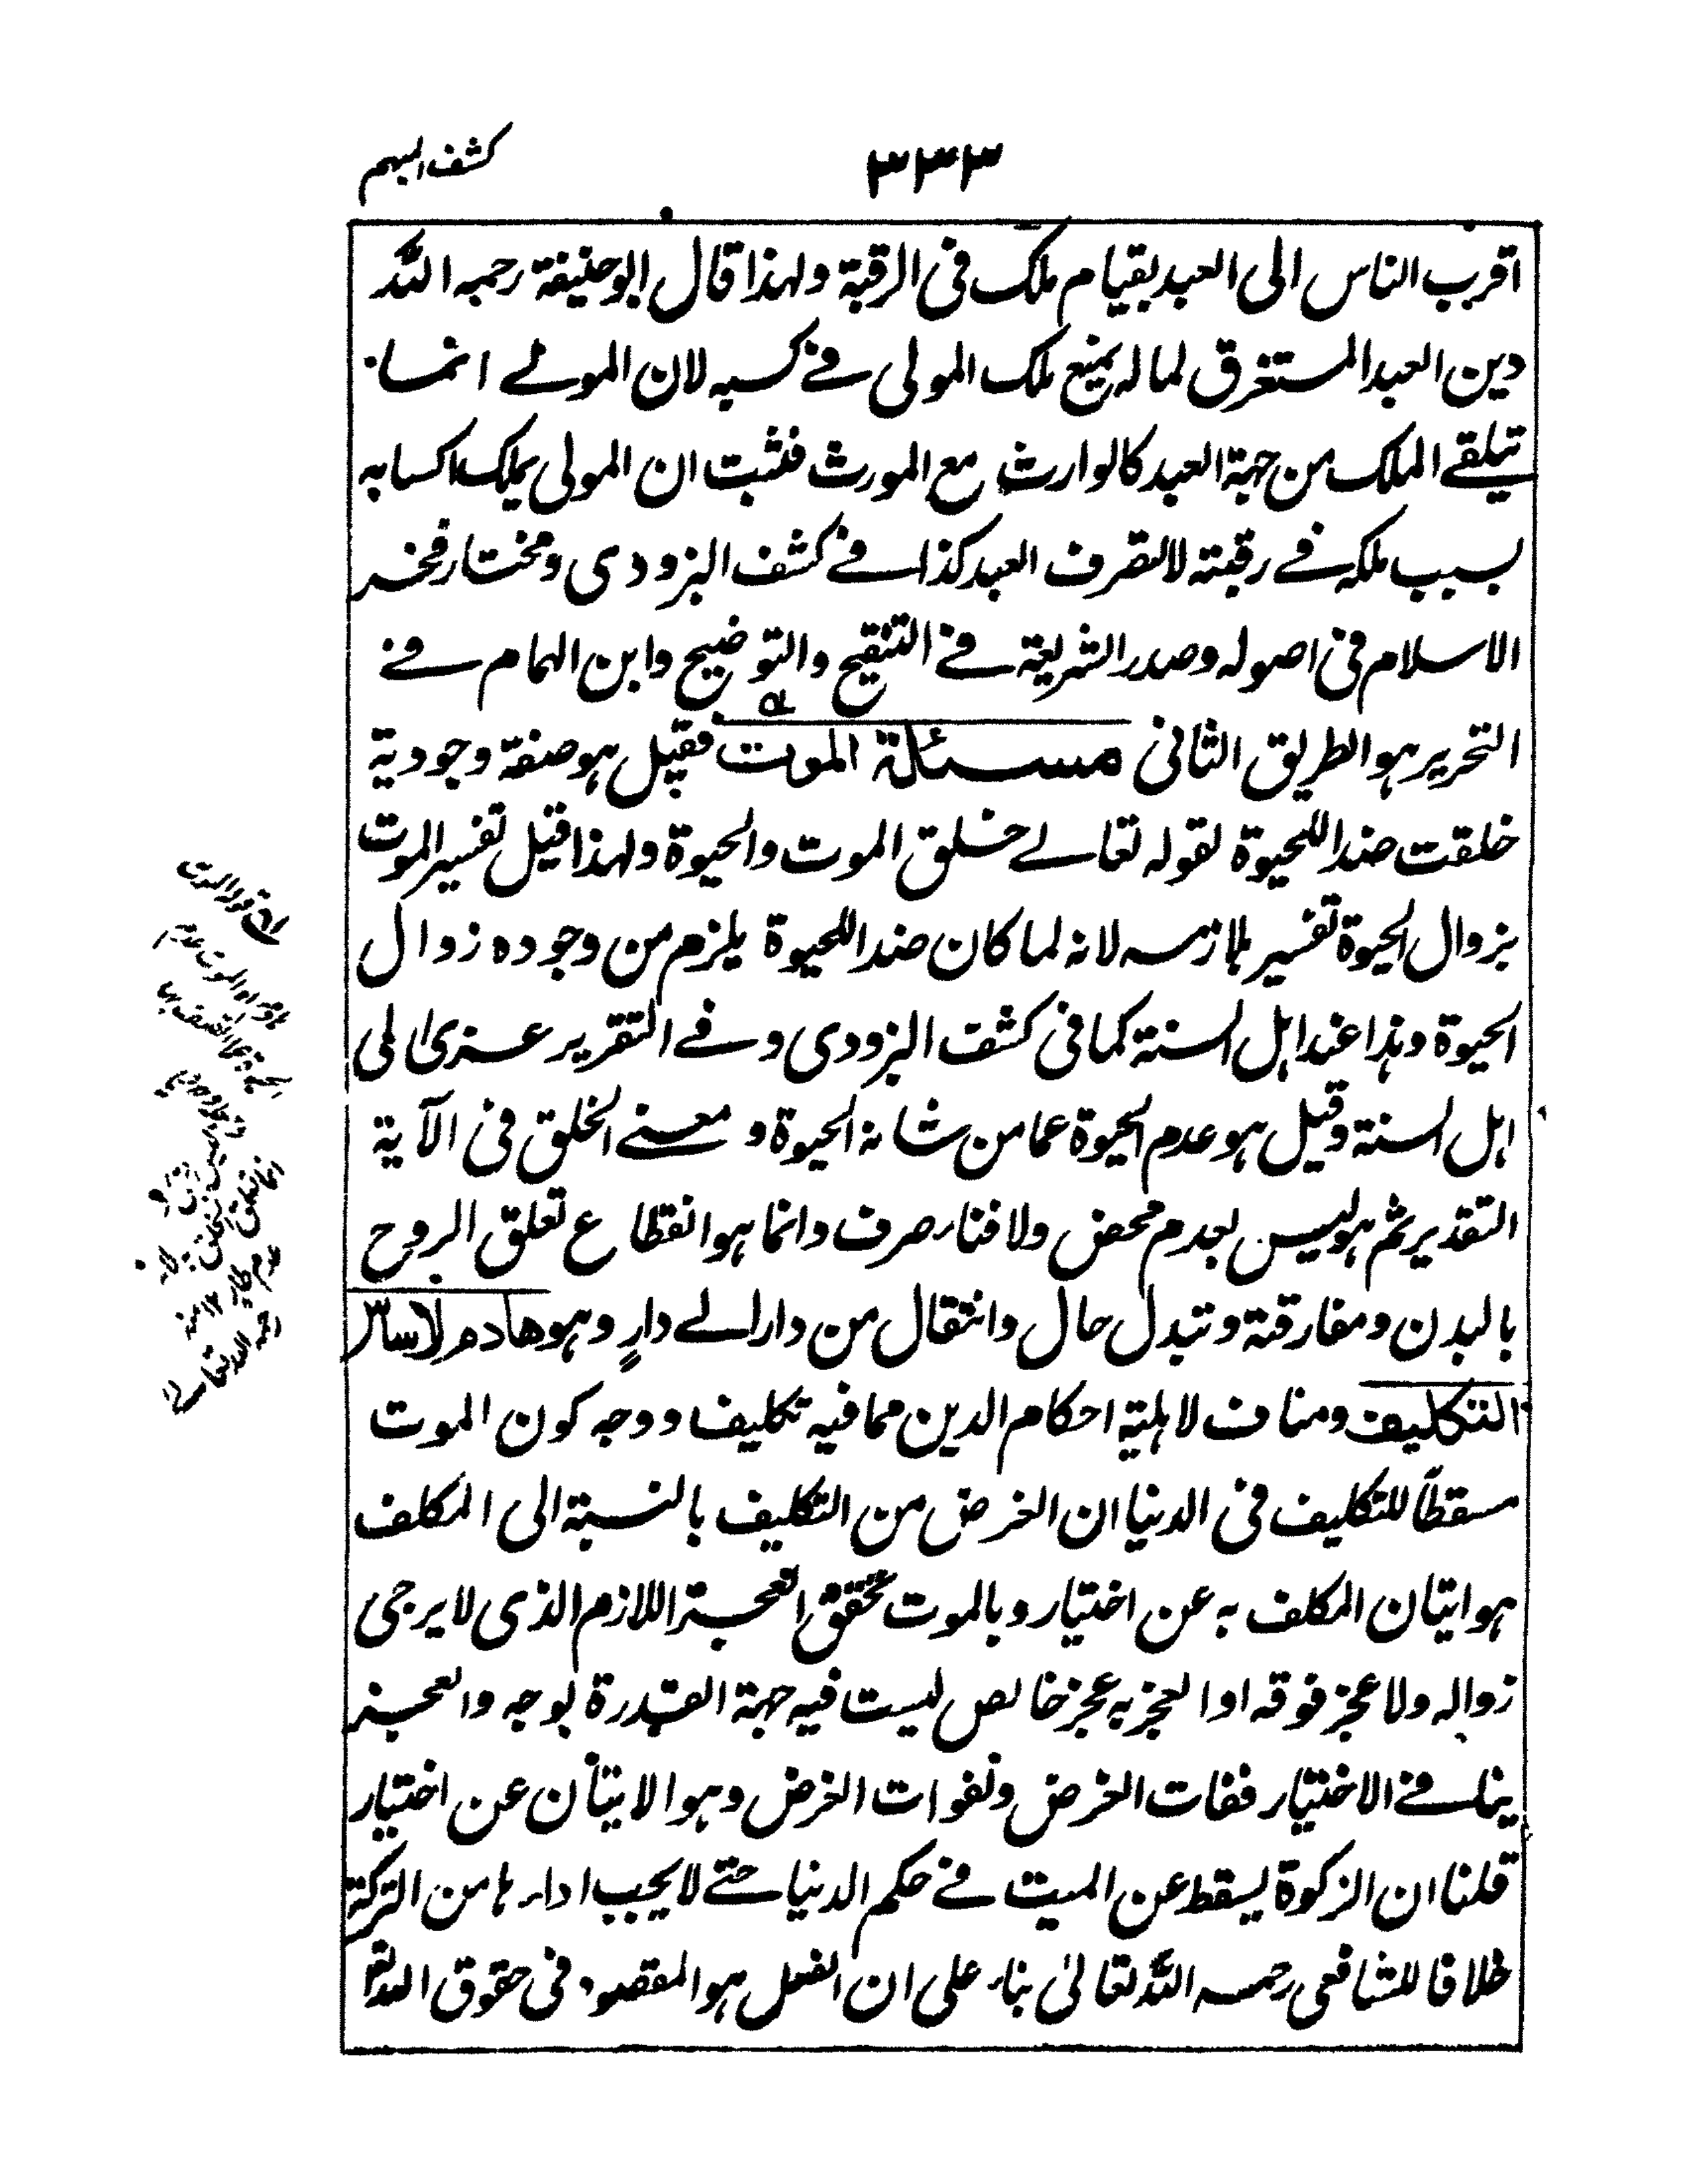 كشف المبهم
٣٣٣
اقرب الناس الى العبد بقيام ملكه فى الرقبة ولهذا قال ابو حنيفة رحمه الله
دين العبد المستغرق لماله يمنع ملك المولى فى كسبه لان المولى انما
يتلقى الملك من جهة العبد كالوارث مع المورث فثبت ان المولى يملك اكسابه
بسبب ملكه فى رقبته لا لتصرف العبد كذا فى كشف البزودى ومختار فخر
الاسلام فى اصوله وصدر الشريعة فى التنقيح والتوضيح وابن الهمام فى
التحرير هو الطريق الثانى مسئلة الموت فقيل هو صفة وجودية
خلقت ضدا للحيوة لقوله تعالى خلق الموت والحيوة ولهذا قيل تفسير الموت
بزوال الحيوة تفسير بلازمه لانه لما كان ضدا للحيوة يلزم من وجوده زوال
الحيوة وهذا عند اهل السنة كما فى كشف البزودى وفى التقرير عزى الى
اهل السنة وقيل هو عدم الحيوة عما من شانه الحيوة ومعنى الخلق فى الآية
التقدير ثم هو ليس بعدم محض ولا فناء صرف وانما هو انقطاع تعلق الروح
بالبدن ومفارقة وتبدل حال وانتقال من دار الى دارٍ وهو هادم لاساس
التكليف ومناف لاهلية احكام الدين مما فيه تكليف ووجه كون الموت
مسقطًا للتكليف فى الدنيا ان الغرض من التكليف بالنسبة الى المكلف
هو اتيان المكلف به عن اختيار وبالموت تحقق العجز اللازم الذى لا يرجى
زواله ولا عجز فوقه اذا العجز به عجز خالص ليست فيه جهة القدرة بوجه والعجز
ينافى الاختيار ففات الغرض ولفوات الغرض وهو الاتيان عن اختيار
قلنا ان الزكوة يسقط عن الميت فى حكم الدنيا حتى لا يجب اداءها من التركة
خلافا للشافعى رحمه الله تعالىٰ بناء على ان الفعل هو المقصود فى حقوق الله تعا